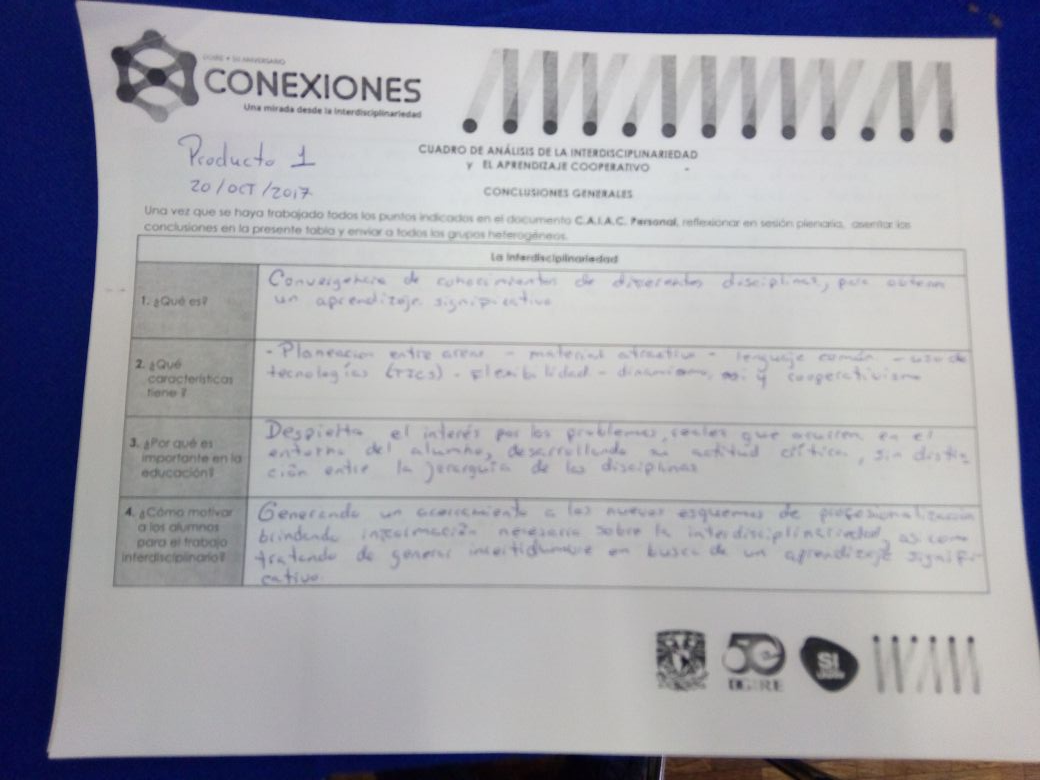 DGIRE • 50 ANIVERSARIO
CONEXIONES
Una mirada desde la interdisciplinariedad
Producto 1
20/OCT/2017
CUADRO DE ANÁLISIS DE LA INTERDISCIPLINARIEDAD
y EL APRENDIZAJE COOPERATIVO
CONCLUSIONES GENERALES
Una vez que se haya trabajado todos los puntos indicados en el documento C.A.I.A.C. Personal, reflexionar en sesión plenaria, asentar las
conclusiones en la presente tabla y enviar a todos los grupos heterogéneos.
La Interdisciplinariedad
1. ¿Qué es?
Convergencia de conocimientos de diferentes disciplinas, para obtener
un aprendizaje significativo
2. ¿Qué
características
tiene ?
- Planeación entre areas - material atractivo - lenguaje común - uso de
tecnologías (TICS) - Flexibilidad - dinamismo, y cooperativismo
3. ¿Por qué es
importante en la
educación?
Despierta el interés por los problemas reales que ocurren en el
entorno del alumno, desarrollando su actitud crítica, sin distin
ción entre la jerarquía de las disciplinas
4. ¿Cómo motivar
a los alumnos
para el trabajo
interdisciplinario?
Generando un acercamiento a los nuevos esquemas de profesionalización
brindando información necesaria sobre la interdisciplinariedad, así como
tratando de generar incertidumbre en busca de un aprendizaje signifi-
cativo.
50
DGIRE
SI